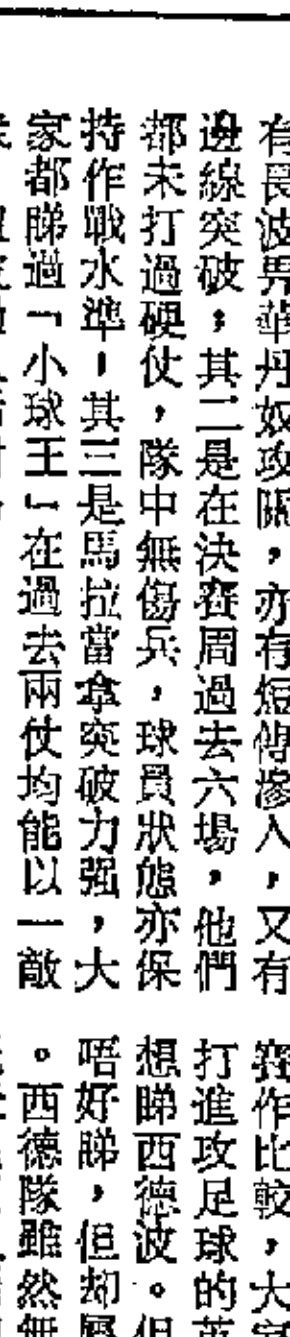 有畏波畀華丹奴攻關，亦有短傳滲入，又有
邊線突破；其二是在決賽周過去六場，他們
都未打過硬仗，隊中無傷兵，球員狀態亦保
持作戰水準，其三是馬拉當拿突破力强，大
家都睇過「小球王」在過去兩仗均能以一敵
賽作比較，大家
打進攻足球的
想睇西德波。但
唔好睇，但却屬
。西德隊雖然無